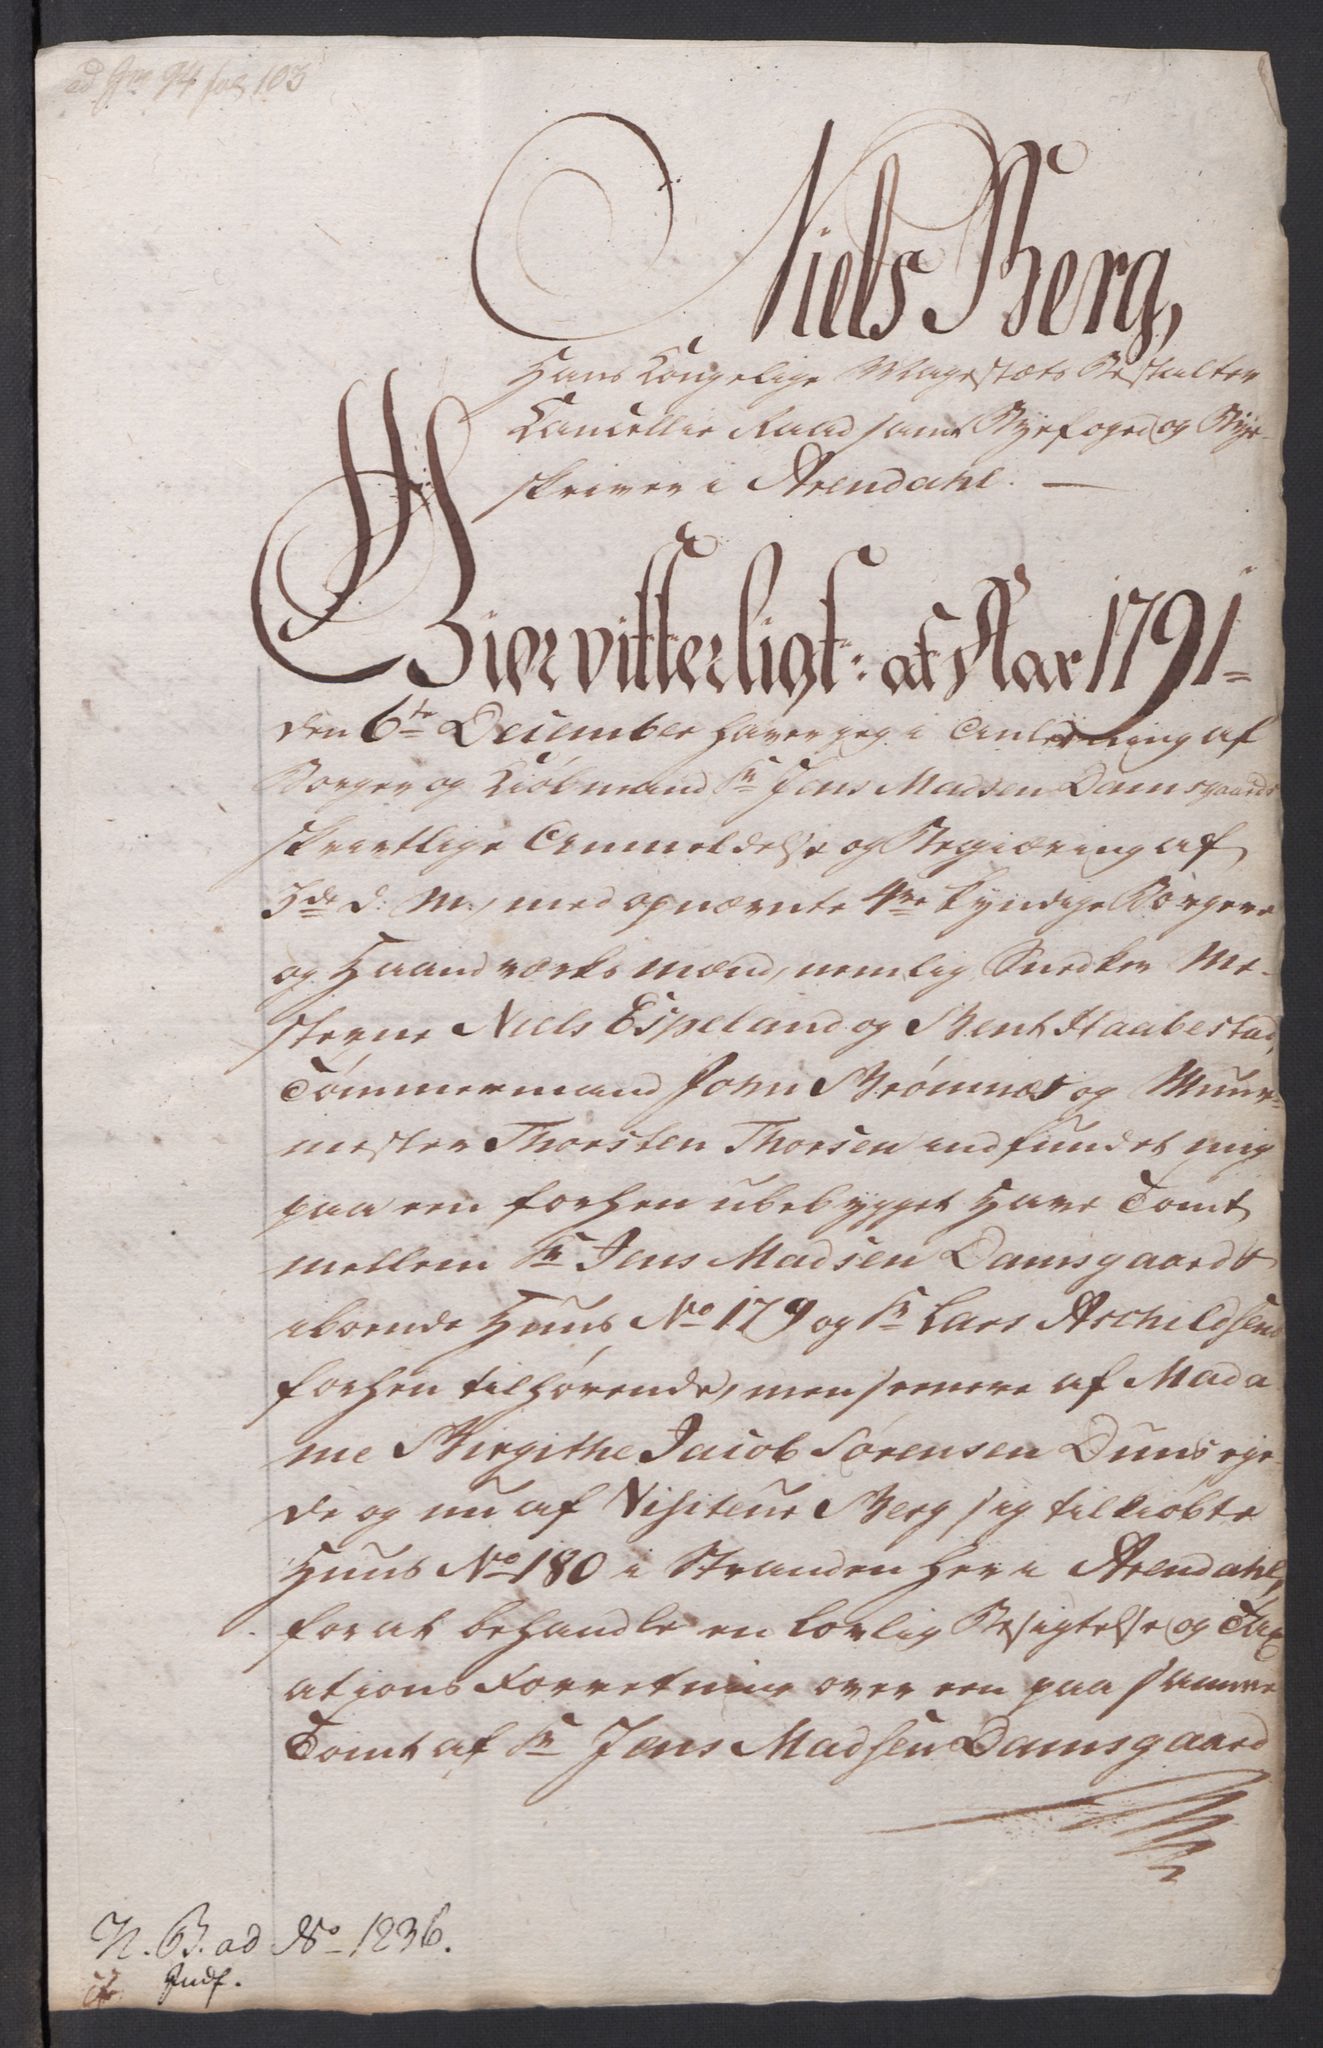 ad 94 fol 103
Niels Berg,
Hans Kongelige Mayestæts Bestalter
Cancellie Raad samt Byefoged og Bye-
skriver i Arendahl. —
Giør vitterligt: at Aar 1791 =
den 6te December haver jeg i Anledning af
Borger og Kiøbmand Sr Jens Madsen Damsgaards
skriftlige Anmeldelse og Begiæring af
3de d: M:, med opnævnte 4re kyndige Borgere
og Haandværks mænd, nemlig Snedker Me-
sterne Niels Espeland og Bent Haabestad,
Tømmermand John Brømnes og Muur-
mester Thorsten Thorsen indfundet mig
paa een forhen ubebygget Have Tomt
mellem Sr Jens Madsen Damsgaards
iboende Huus No 179 og Sr Lars Aschildsens
forhen tilhørende, men senere af Mada
me Birgithe Jacob Sørensen Duns eye-
de og nu af Visiteur Berg sig tilkiøbte
Huus No 180 i Stranden her i Arendahl,
for at behandle en lovlig Besigtelse og Tax
ations Forretning over een paa samme
Tomt af Sr Jens Madsen Damsgaard
N. B. ad No 1236.